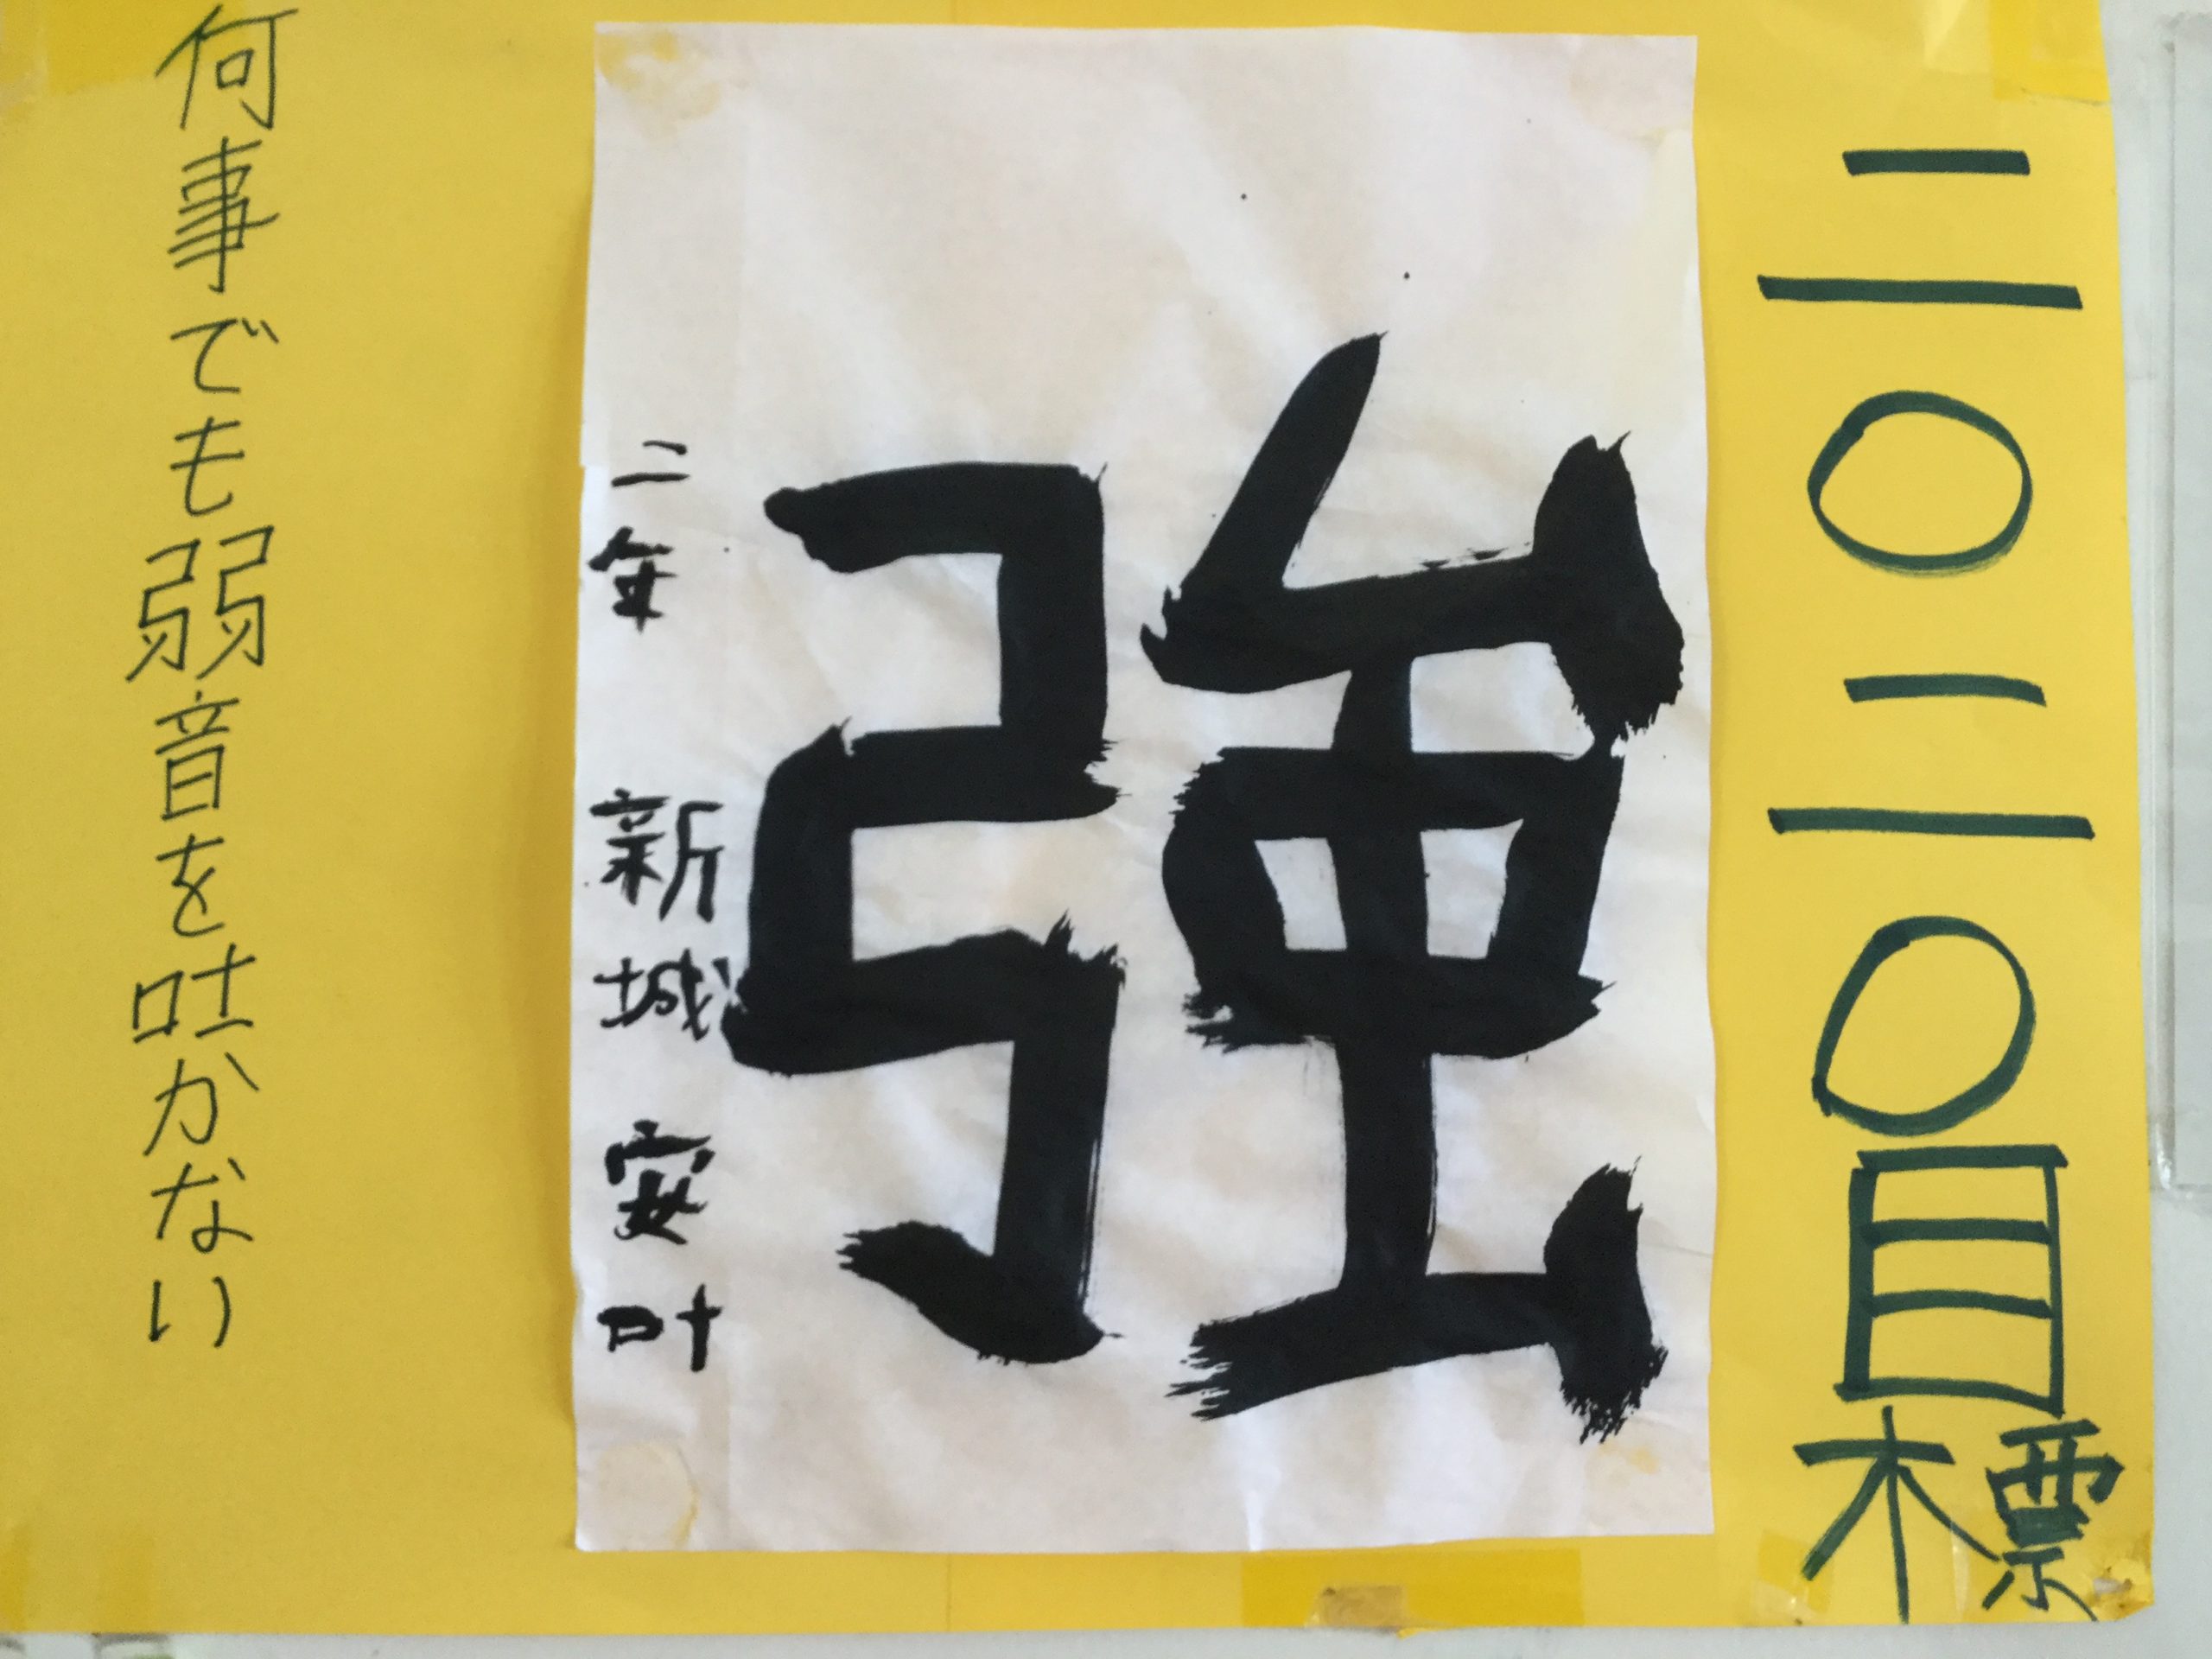 二〇二〇目標
強
二年 新城 安叶
何事でも弱音を吐かない